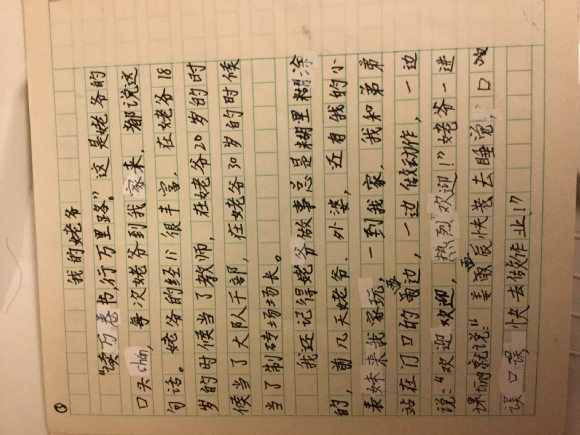 ②
我的姥爷
“读万卷书，行万里路。”这是姥爷的
口头chán，每次姥爷到我家来，都说这
句话。
姥爷的经li很丰富，在姥爷18
岁的时候当了教师，在姥爷20岁的时
候当了大队干部，在姥爷30岁的时候
当了制砖场场长。
我还记得姥爷做事总是糊里糊涂
的，前几天姥爷、外婆，还有我的小
表妹来我家玩，一到我家，我和弟弟
站在门口的两边，一边做动作，一边
说：“欢迎欢迎，热烈欢迎！”姥爷一进
课 就说：“姜 辰快去去睡觉，”口
误口误，快去做作业！”